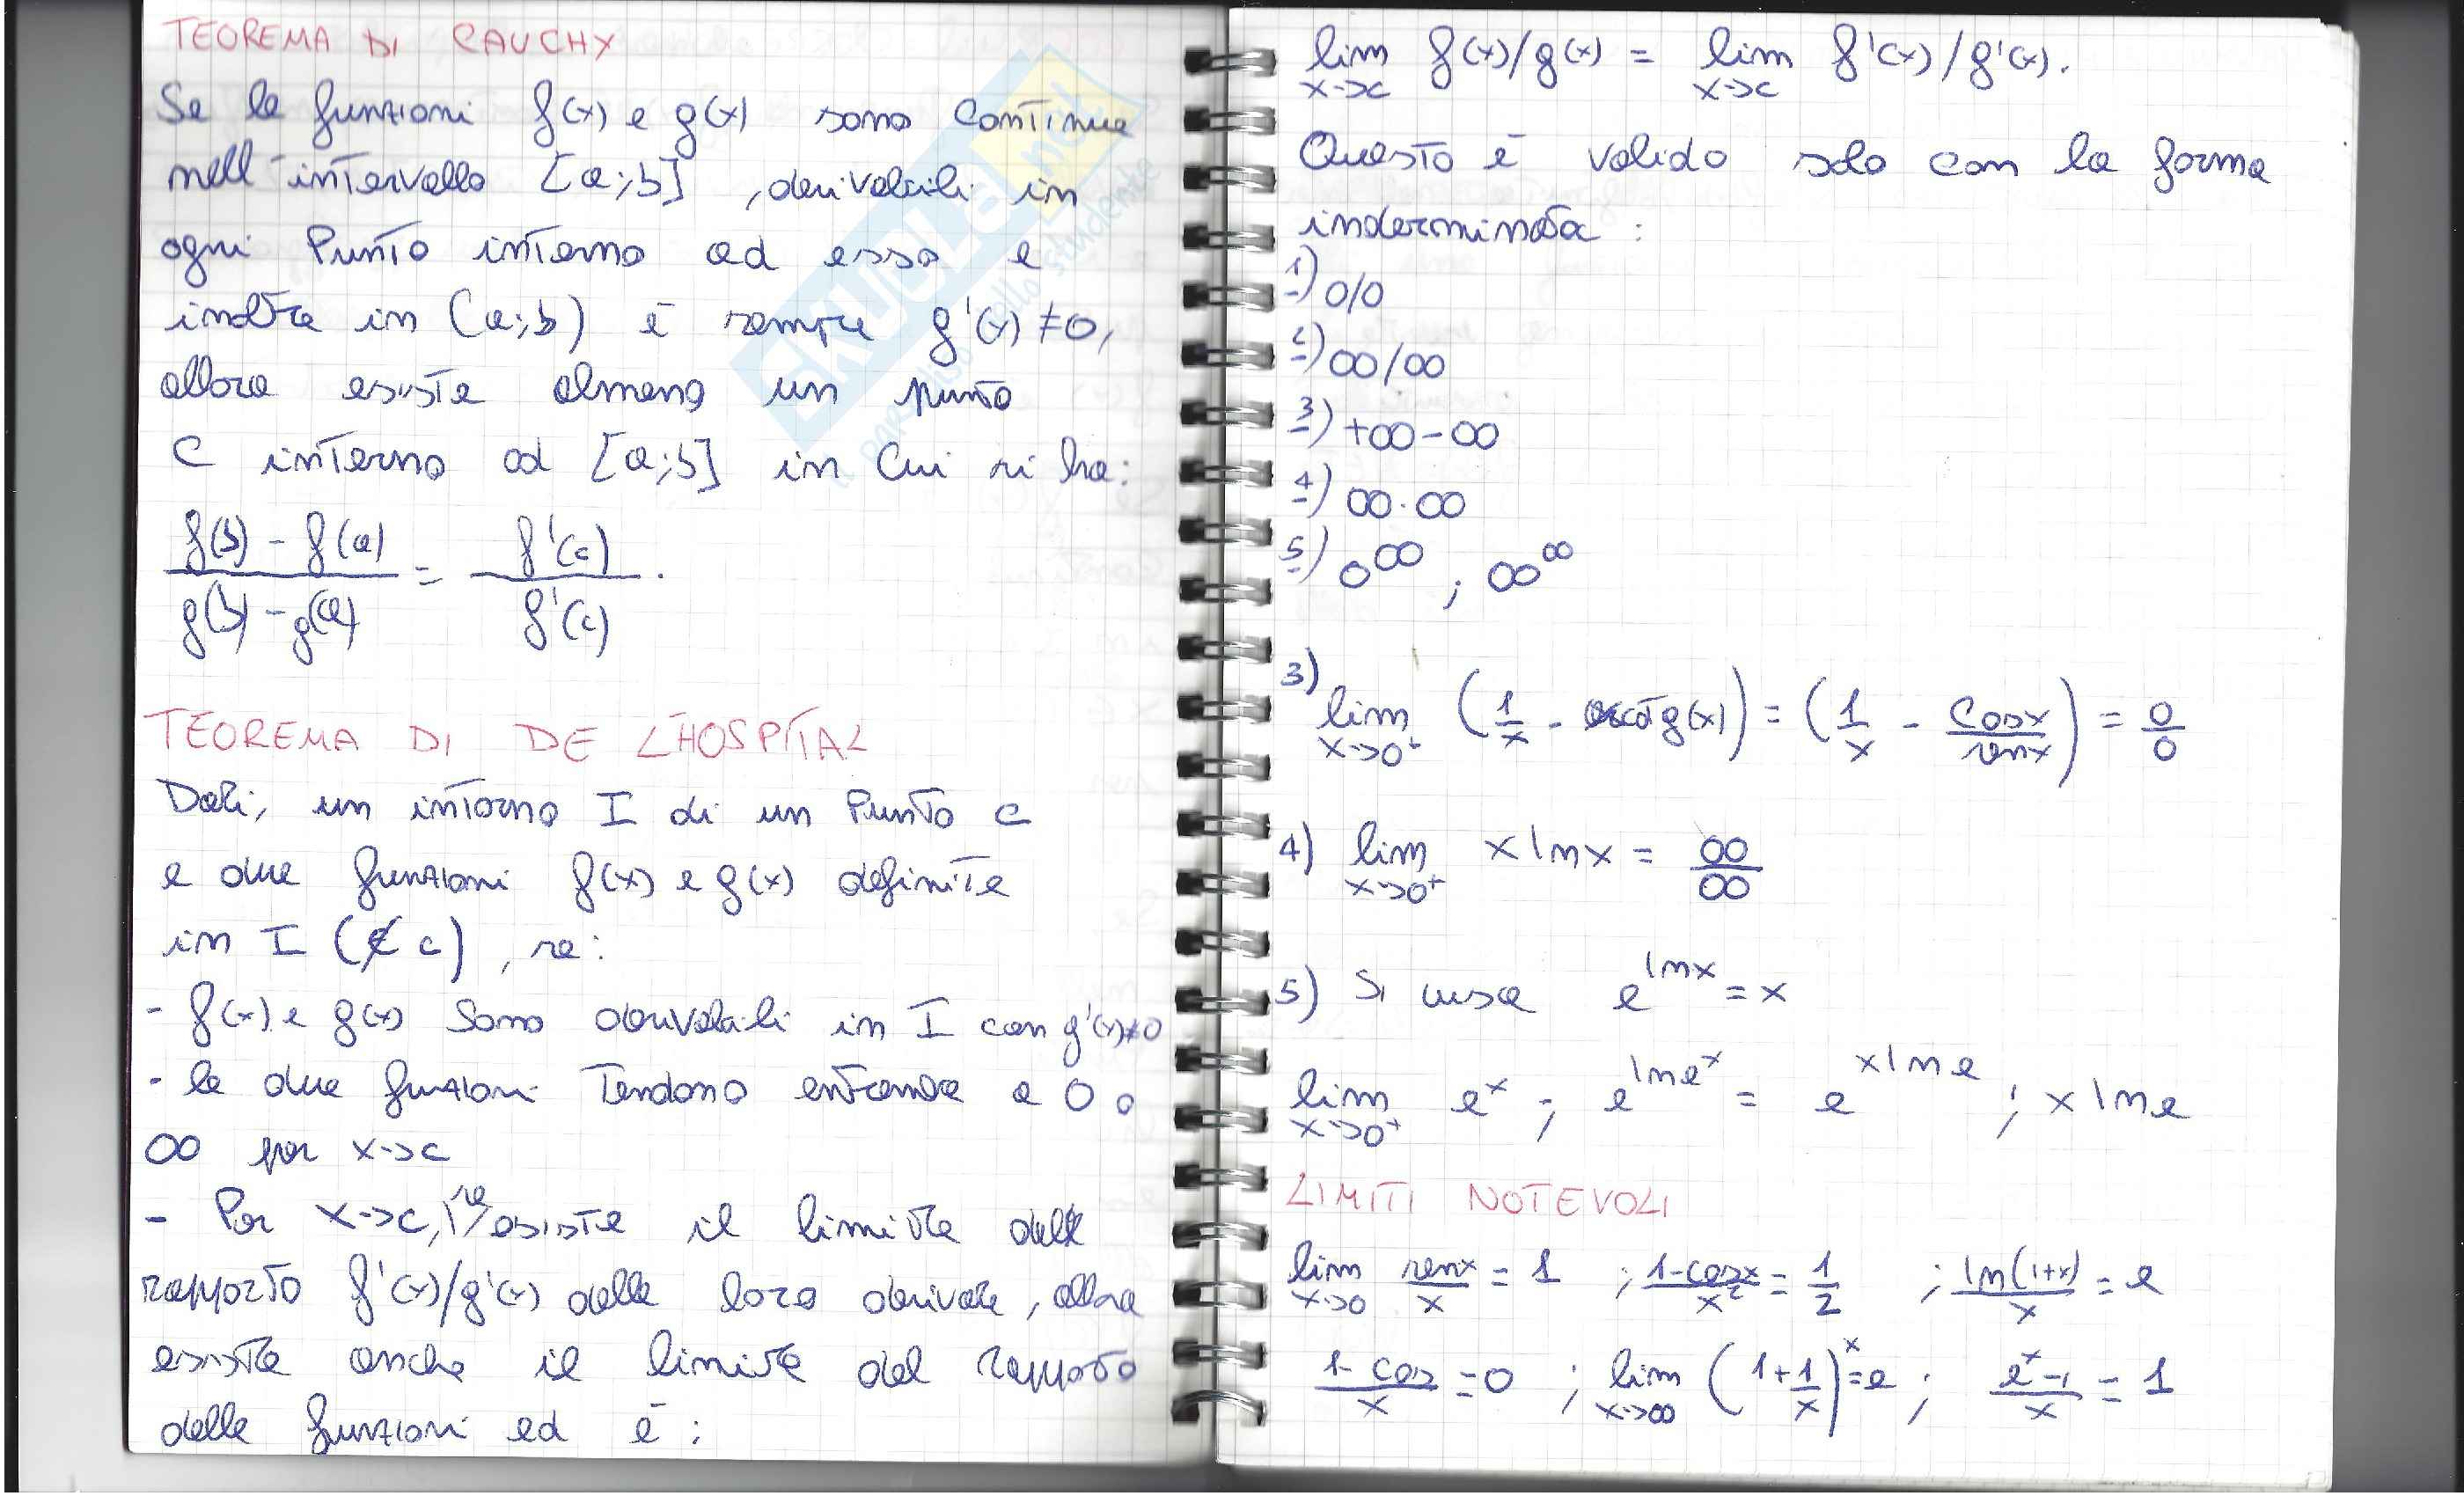 TEOREMA DI CAUCHY
Se le funzioni f(x) e g(x) sono continue
nell'intervallo [a;b], derivabili in
ogni punto interno ad esso e
inoltre in (a;b) è sempre g'(x) ≠ 0,
allora esiste almeno un punto
c interno ad [a;b] in cui si ha:
f(b) - f(a) / g(b) - g(a) = f'(c) / g'(c).
TEOREMA DI DE L'HOSPITAL
Dati, un intorno I di un punto c
e due funzioni f(x) e g(x) definite
in I (∉ c), se:
- f(x) e g(x) sono derivabili in I con g'(x)≠0
- le due funzioni tendono entrambe a 0 o
∞ per x->c
- Per x->c, se esiste il limite del
rapporto f'(x)/g'(x) delle loro derivate, allora
esiste anche il limite del rapporto
delle funzioni ed è:
lim x->c f(x)/g(x) = lim x->c f'(x)/g'(x).
Questo è valido solo con la forma
inderminata:
1) 0/0
2) ∞/∞
3) +∞-∞
4) ∞·∞
5) 0^∞ ; ∞^∞
3) lim x->0+ (1/x - cotg(x)) = (1/x - cosx/senx) = 0/0
4) lim x->0+ x lnx = ∞/∞
5) Si usa e^lnx = x
lim x->0+ e^x ; e^lne^x = e^xlne ; x lne
LIMITI NOTEVOLI
lim x->0 senx/x = 1 ; 1-cosx/x² = 1/2 ; ln(1+x)/x = e
1-cos/x = 0 ; lim x->∞ (1+1/x)^x = e ; e^x-1/x = 1
SKUOLA.net
il paradiso dello studente